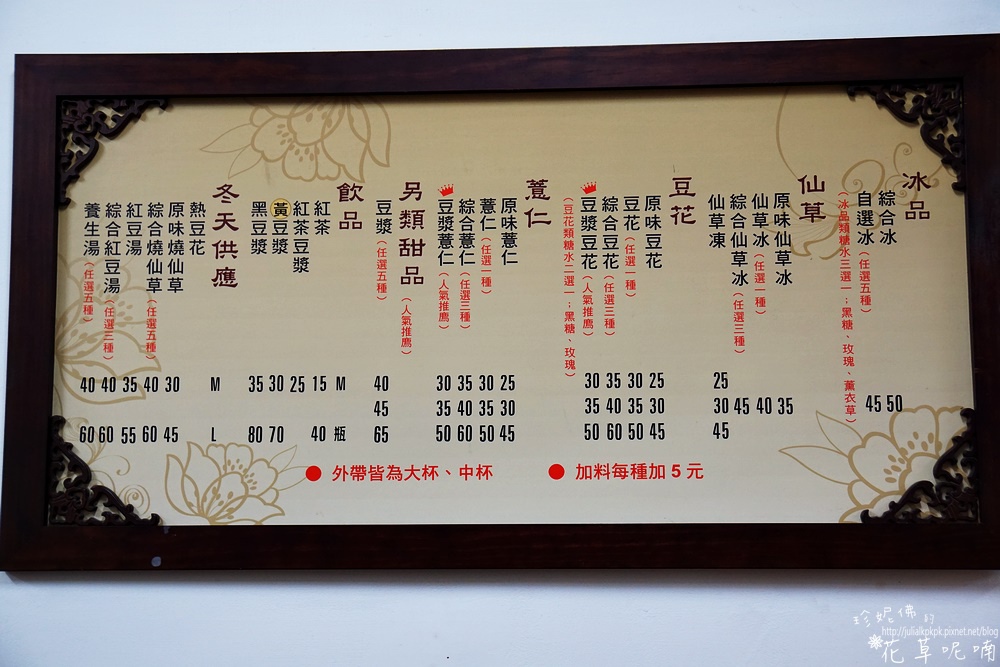 冰品
綜合冰 50
自選冰(任選五種) 45
(冰品類糖水三選一;黑糖、玫瑰、薰衣草)
仙草
原味仙草冰 35
仙草冰(任選一種) 40
綜合仙草冰(任選三種) 45
仙草凍 25 30 45
豆花
原味豆花 25 30 45
豆花(任選一種) 30 35 50
綜合豆花(任選三種) 35 40 60
豆漿豆花(人氣推鷹) 30 35 50
(豆花類糖水二選一;黑糖、玫瑰)
薏仁
原味薏仁 25 30 45
薏仁(任選一種) 30 35 50
綜合薏仁(任選三種) 35 40 60
豆漿薏仁(人氣推鷹) 30 35 50
另類甜品(人氣推鷹)
豆漿(任選五種) 40 45 65
飲品 M 瓶
紅茶 15 40
紅茶豆漿 25
黃豆漿 30 70
黑豆漿 35 80
冬天供應 M L
熱豆花 30 45
原味燒仙草 40 60
綜合燒仙草(任選五種) 35 55
紅豆湯 40 60
綜合紅豆湯(任選三種) 40 60
養生湯(任選五種)
● 外帶皆為大杯、中杯
● 加料每種加 5 元
珍妮佛的
http://julialkpkpk.pixnet.net/blog
花草呢喃